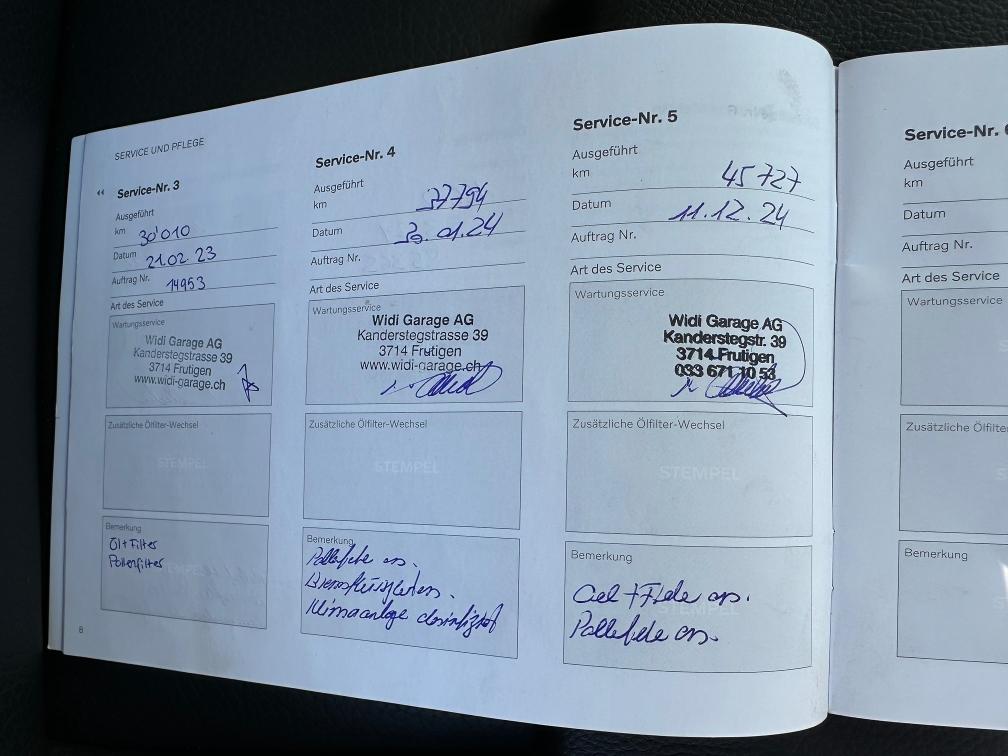 SERVICE UND PFLEGE
Service-Nr. 3
Ausgeführt
km 30'010
Datum 21.02.23
Auftrag Nr. 14953
Art des Service
Wartungsservice
Widi Garage AG
Kanderstegstrasse 39
3714 Frutigen
www.widi-garage.ch
Zusätzliche Ölfilter-Wechsel
STEMPEL
Bemerkung
Öl+Filter
Pollenfilter
8
Service-Nr. 4
Ausgeführt
km 37794
Datum 30.01.24
Auftrag Nr.
Art des Service
Wartungsservice
Widi Garage AG
Kanderstegstrasse 39
3714 Frutigen
www.widi-garage.ch
Zusätzliche Ölfilter-Wechsel
STEMPEL
Bemerkung
Klimaanlage
Service-Nr. 5
Ausgeführt
km 45727
Datum 11.12.24
Auftrag Nr.
Art des Service
Wartungsservice
Widi Garage AG
Kanderstegstr. 39
3714 Frutigen
033 671 10 53
Zusätzliche Ölfilter-Wechsel
STEMPEL
Bemerkung
STEMPEL
Service-Nr.
Ausgeführt
km
Datum
Auftrag Nr.
Art des Service
Wartungsservice
Zusätzliche Ölfilter
Bemerkung